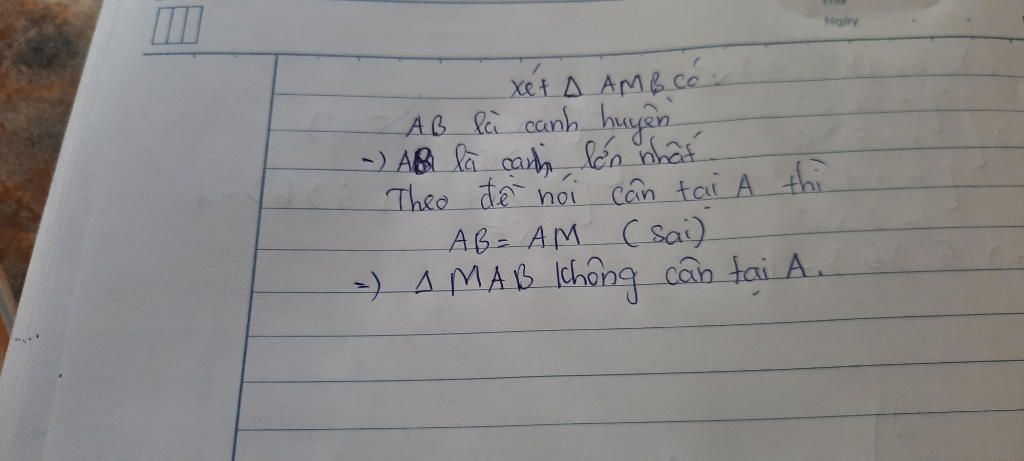 Thứ
Ngày
Xét Δ AMB có:
AB là cạnh huyền
=) AB là cạnh lớn nhất.
Theo đề nói cân tại A thì
AB = AM (sai)
=) Δ MAB không cân tại A.